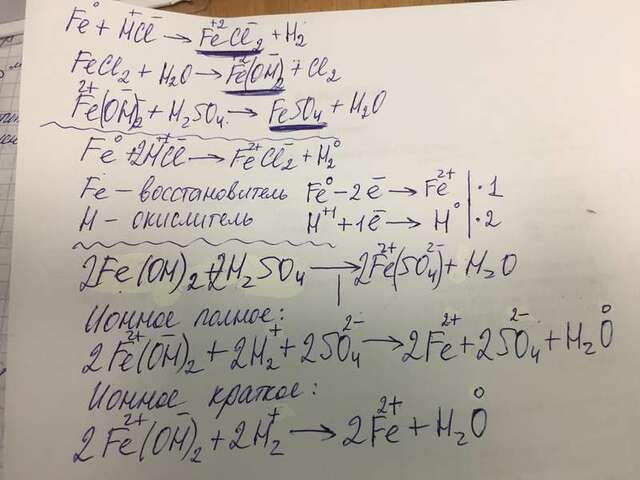 Fe⁰ + H⁺Cl⁻ → Fe⁺²Cl⁻₂ + H₂
FeCl₂ + H₂O → Fe(OH)₂ + Cl₂
Fe²⁺(OH)⁻₂ + H₂SO₄ → FeSO₄ + H₂O
Fe⁰ + 2H⁺Cl⁻ → Fe²⁺Cl⁻₂ + H₂⁰
Fe – восстановитель Fe⁰ - 2e̅ → Fe²⁺ | · 1
H – окислитель H⁺¹ + 1e̅ → H⁰ | · 2
2Fe(OH)₂ + 2H₂SO₄ → 2Fe²⁺(SO₄)²⁻ + H₂O
Ионное полное:
2Fe²⁺(OH)⁻₂ + 2H₂⁺ + 2SO₄²⁻ → 2Fe²⁺ + 2SO₄²⁻ + H₂O⁰
Ионное краткое:
2Fe²⁺(OH)⁻₂ + 2H₂⁺ → 2Fe²⁺ + H₂O⁰